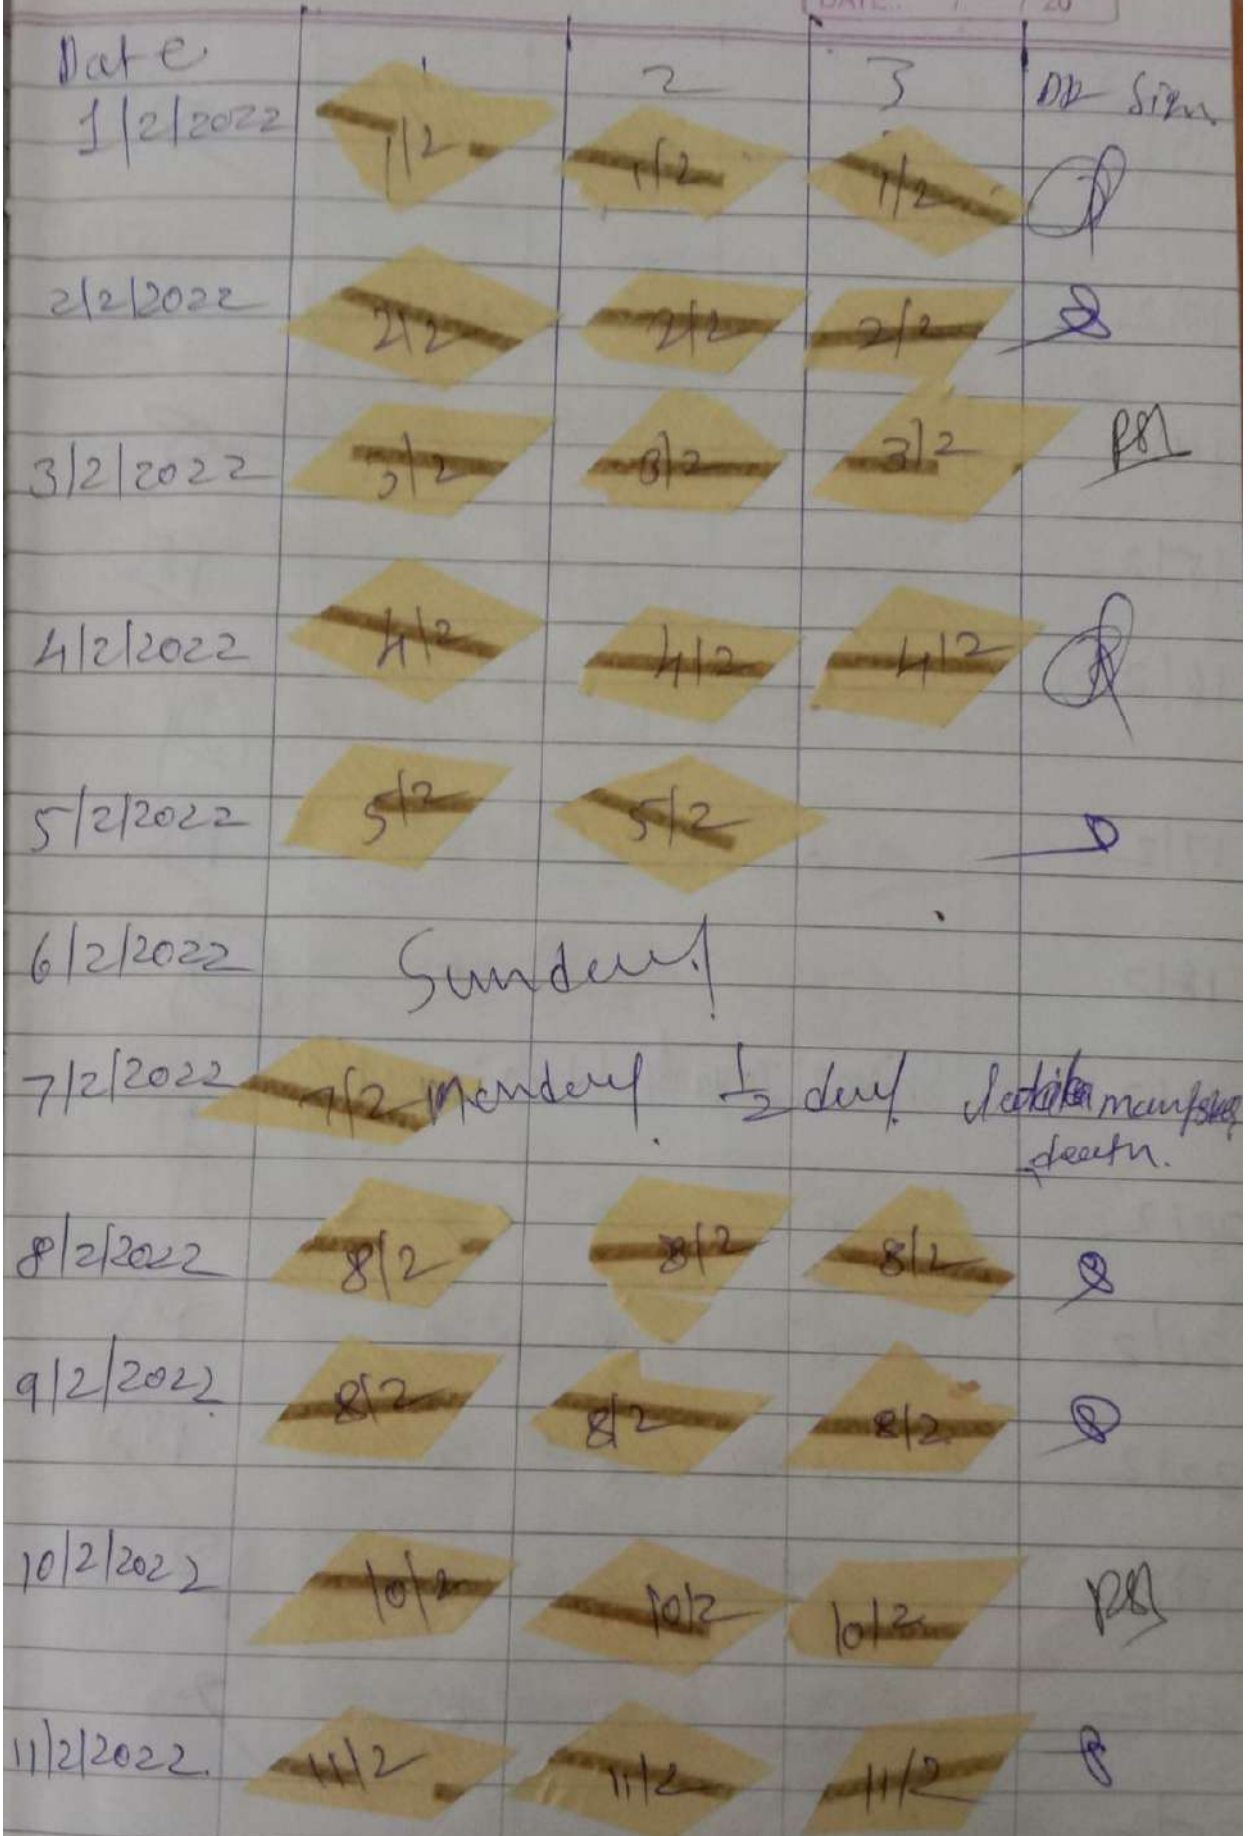 DATE.: / / 20
Date 1 2 3 DR Sign
1/2/2022 1/2 1/2 1/2
2/2/2022 2/2 2/2 2/2
3/2/2022 3/2 3/2 3/2
4/2/2022 4/2 4/2 4/2
5/2/2022 5/2 5/2
6/2/2022 Sunday
7/2/2022 7/2 Monday 1/2 day
death.
8/2/2022 8/2 8/2 8/2
9/2/2022 8/2 8/2 8/2
10/2/2022 10/2 10/2 10/2
11/2/2022. 11/2 11/2 11/2